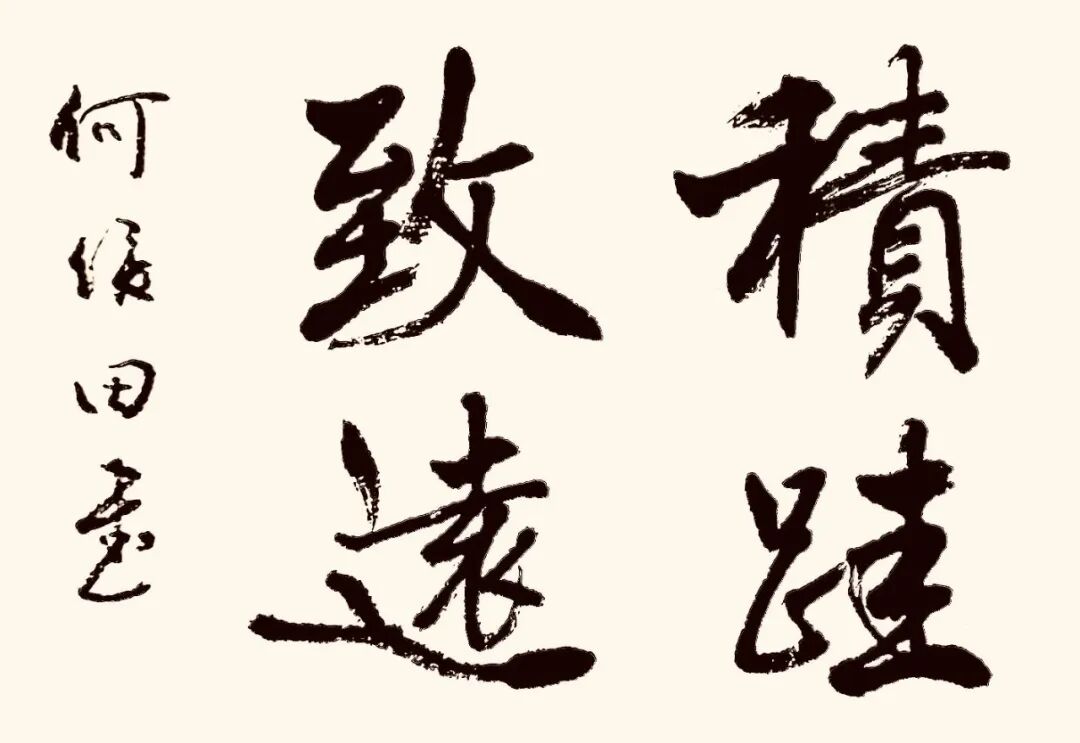 積跬
致遠
何俊田書